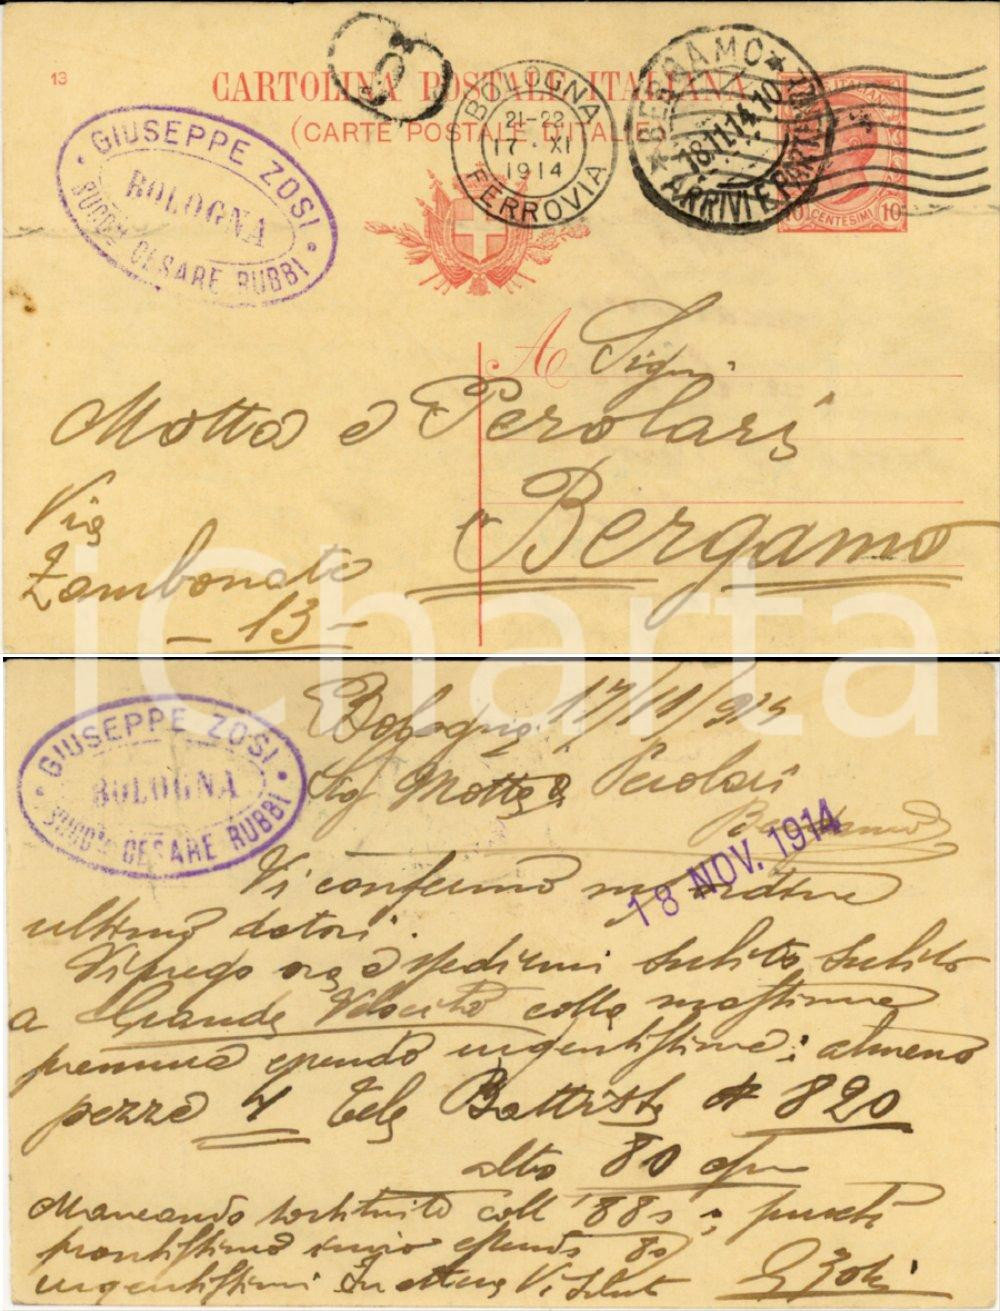 13
CARTOLINA POSTALE ITALIANA
(CARTE POSTALE D'ITALIE)
GIUSEPPE ZOSI
BOLOGNA
SUCC.re CESARE RUBBI
BOLOGNA
21-22
17 · XI
1914
FERROVIA
BERGAMO
18.11.14.10
ARRIVI E PARTENZE
10 CENTESIMI 10
A Sign.
Motta e Perolari
Bergamo
Via
Zambonate
- 13 -
iCharta
GIUSEPPE ZOSI
BOLOGNA
SUCC.re CESARE RUBBI
Bologna, 17/11/914
Sig Motta & Perolari
Bergamo
18 NOV. 1914
Vi confermo mio ordine
ultimo datovi.
Vi prego ora a spedirmi subito subito
a Grande Velocità colla massima
premura essendo urgentissima; almeno
pezze 4 Tela Battista # 820
alto 80 cm
Mancando sostituite coll' 88; purchè
prontissimo invio essendo
urgentissimi In attesa Vi saluto
G Zosi